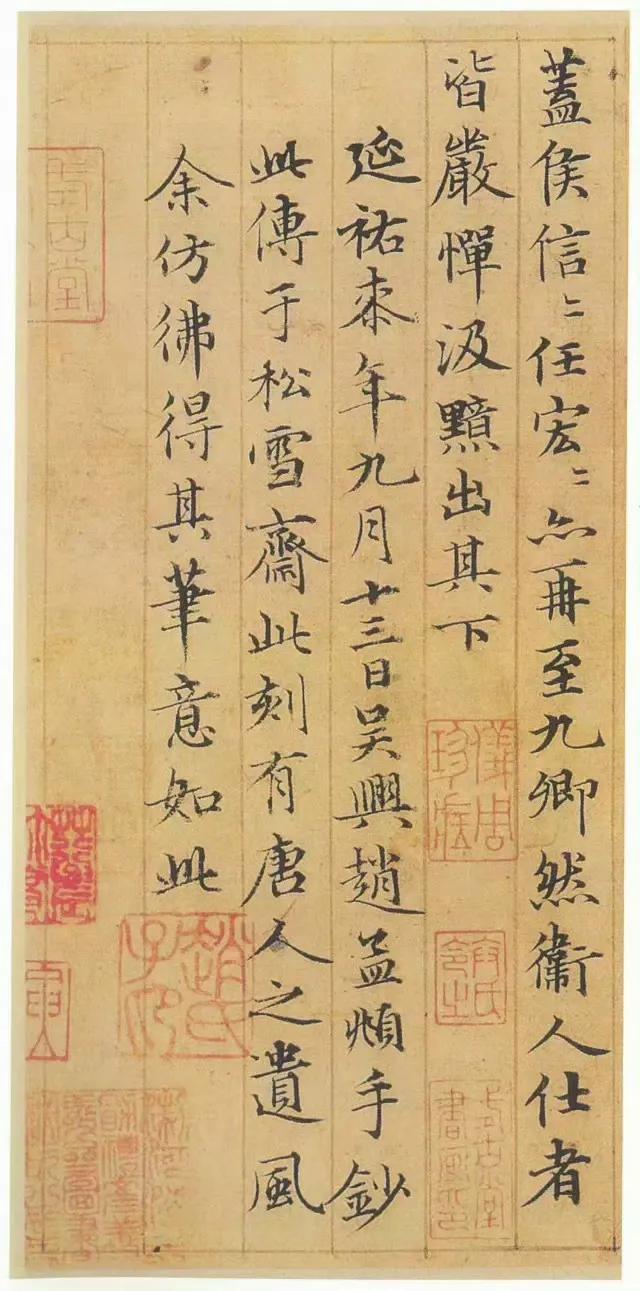 蓋侯信〻任宏〻亦再至九卿然衞人仕者
皆嚴憚汲黯出其下
延祐柒年九月十三日吴興趙孟頫手鈔
此傳于松雪齋此刻有唐人之遺風
余仿彿得其筆意如此
趙氏子印